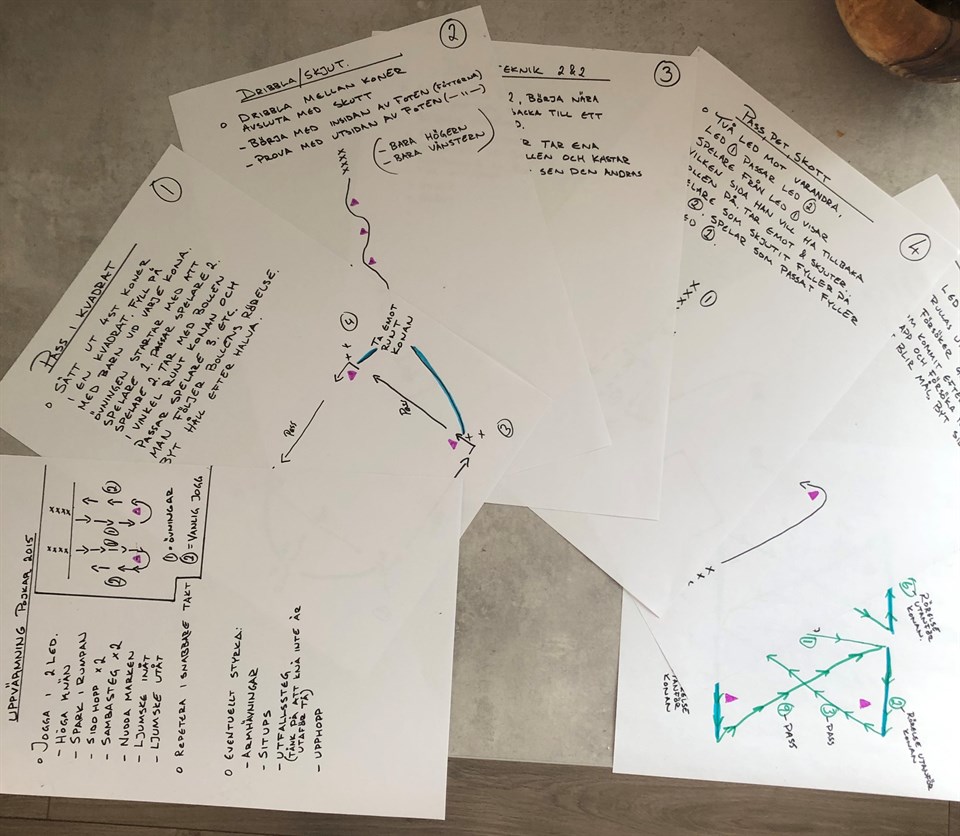 UPPVÄRMNING POJKAR 2015
o JOGGA I 2 LED.
- HÖGA KNÄN
- SPARK I RUMPAN
- SIDOHOPP x2
- SAMBASTEG x2
- NUDDA MARKEN
- LJUMSKE INÅT
- LJUMSKE UTÅT
o REPETERA I SNABBARE TAKT
o EVENTUELLT STYRKA:
- ARMHÄVNINGAR
- SITUPS
- UTFALLSSTEG
(TÄNK PÅ ATT KNÄ INTE ÄR
UTAFÖR TÅ)
- UPPHOPP
xxxx
xxxx
②
①
②
① = ÖVNINGAR
② = VANLIG JOGG
①
PASS I KVADRAT
o SÄTT UT 4ST KONER
I EN KVADRAT. FYLL PÅ
MED BARN VID VARJE KONA.
ÖVNINGEN STARTAR MED ATT
SPELARE 1. PASSAR SPELARE 2.
SPELARE 2. TAR MED BOLLEN
I VINKEL RUNT KONAN OCH
PASSAR SPELARE 3. ETC.
MAN FÖLJER BOLLENS RÖRELSE.
BYT HÅLL EFTER HALVA.
④
TA EMOT
RUNT
KONAN
x x
PASS
PASS
x x
③
②
DRIBBLA/SKJUT.
o DRIBBLA MELLAN KONER
AVSLUTA MED SKOTT
- BÖRJA MED INSIDAN AV FOTEN (FÖTTERNA)
- PROVA MED UTSIDAN AV FOTEN (-"-)
(- BARA HÖGERN
- BARA VÄNSTERN)
xxxx
③
EKNIK 2&2
2, BÖRJA NÄRA
BACKA TILL ETT
TAR ENA
LLEN OCH KASTAR
SEN DEN ANDRAS
④
PASS, PET, SKOTT
o TVÅ LED MOT VARANDRA,
LED ① PASSAR LED ②
SPELARE FRÅN LED ① VISAR
VILKEN SIDA HAN VILL HA TILLBAKA
OLLEN PÅ. TAR EMOT & SKJUTER.
ELARE SOM SKJUTIT FYLLER PÅ
②. SPELAR SOM PASSAT FYLLER
ED ②.
xxx ①
xxx
LED
RULLAS U
FÖRSÖKER
M KOMMIT EFTE
APP OCH FÖRSÖKA
BLIR MÅL, BYT SI
RÖRELSE
UTANFÖR
KONAN.
①
②
RÖRELSE UTANFÖR
KONAN
③-PASS
④-PASS
ELSE
TANFÖR
KONAN